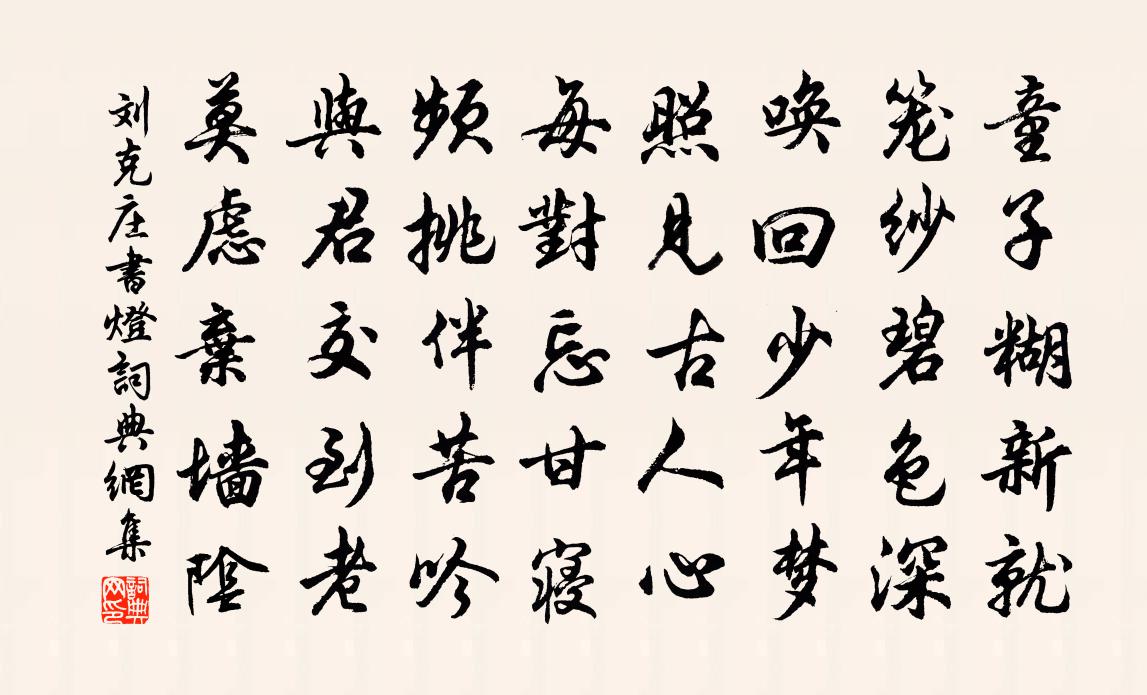 童子糊新就
笼纱碧色深
唤回少年梦
照見古人心
每對忘甘寝
频挑伴苦吟
與君交到老
莫慮棄墙陰
刘克庄書燈詞典網集
詞典
网印